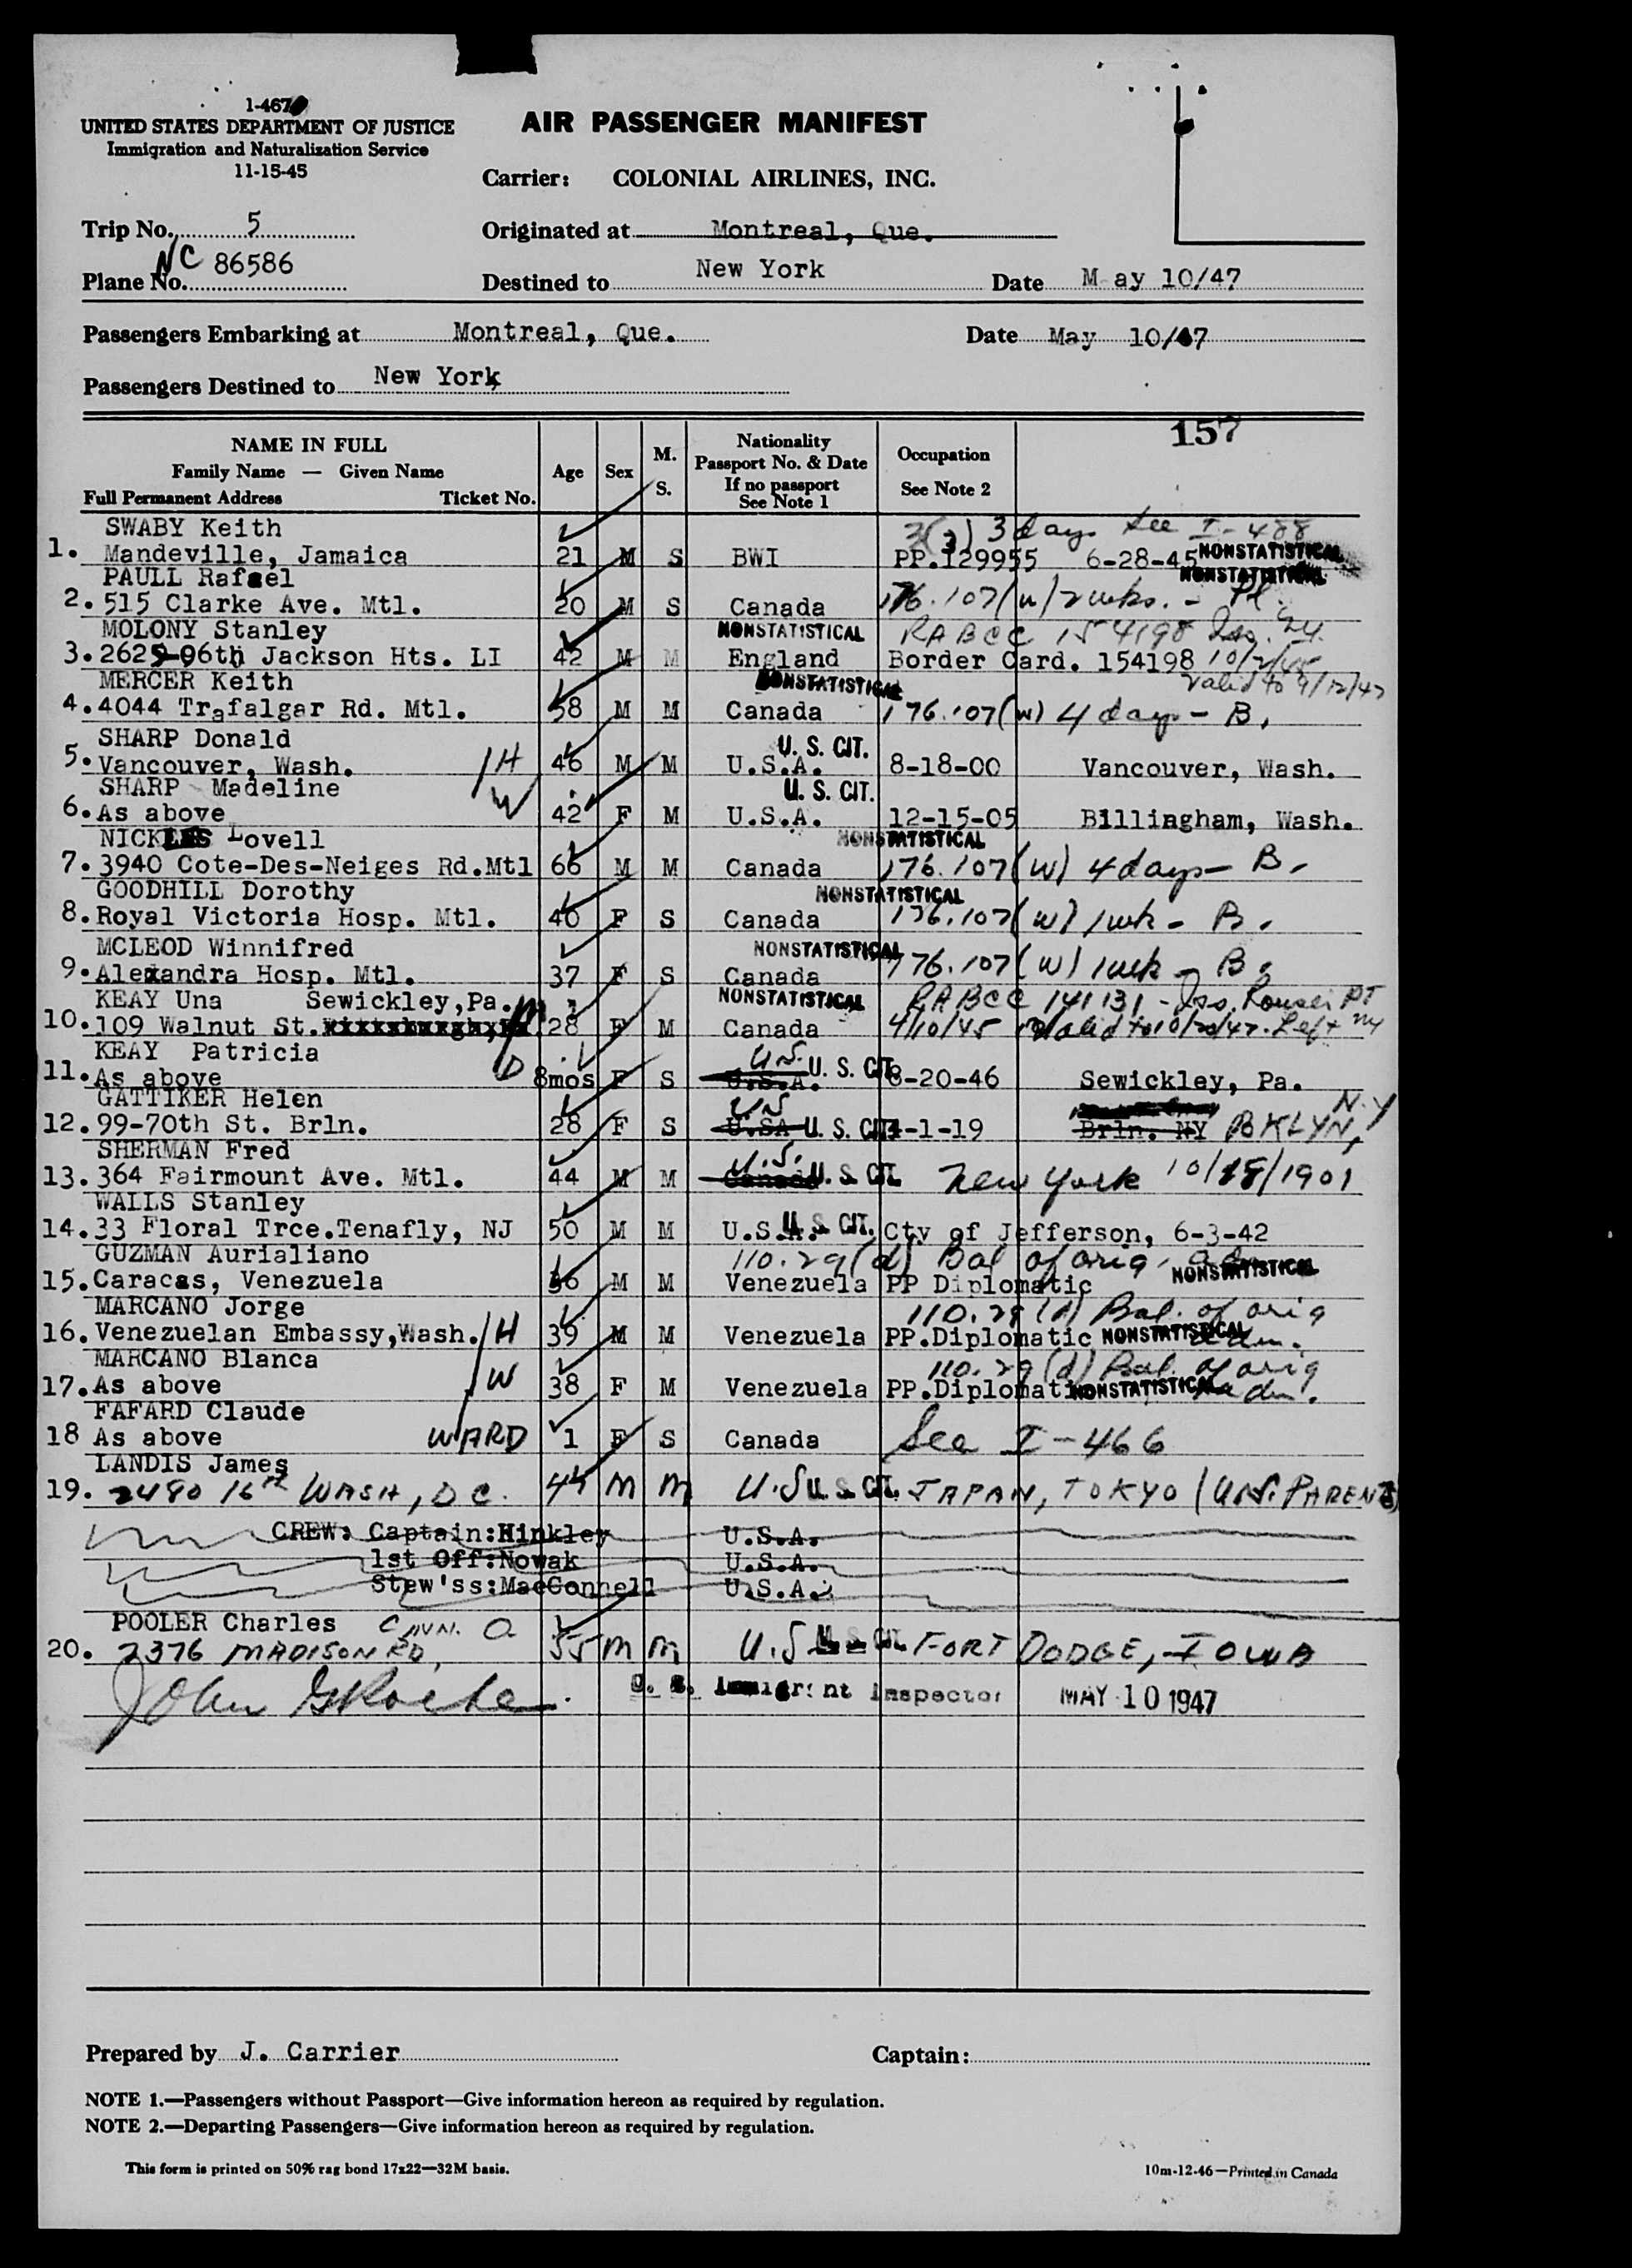 1-467
UNITED STATES DEPARTMENT OF JUSTICE
Immigration and Naturalization Service
11-15-45
AIR PASSENGER MANIFEST
Carrier: COLONIAL AIRLINES, INC.
Trip No. 5
Originated at Montreal, Que.
Plane No. NC 86586
Destined to New York Date May 10/47
Passengers Embarking at Montreal, Que. Date May 10/47
Passengers Destined to New York
157
NAME IN FULL
Family Name — Given Name
Full Permanent Address Ticket No.
Age
Sex
M.
S.
Nationality
Passport No. & Date
If no passport
See Note 1
Occupation
See Note 2
SWABY Keith 3(3) 3 days See I-488
1. Mandeville, Jamaica 21 M S BWI PP.129955 6-28-45 NONSTATISTICAL
PAULL Rafael NONSTATISTICAL
2. 515 Clarke Ave. Mtl. 20 M S Canada 176.107(w) 2 wks. - Pl.
MOLONY Stanley NONSTATISTICAL RABCC 154198 Iss. NY.
3. 2625-96th Jackson Hts. LI 42 M M England Border Card. 154198 10/2/45
MERCER Keith NONSTATISTICAL Valid to 9/12/47
4. 4044 Trafalgar Rd. Mtl. 58 M M Canada 176.107(w) 4 days - B.
SHARP Donald U. S. CIT.
5. Vancouver, Wash. H 46 M M U.S.A. 8-18-00 Vancouver, Wash.
SHARP Madeline W U. S. CIT.
6. As above 42 F M U.S.A. 12-15-05 Billingham, Wash.
NICKLES Lovell NONSTATISTICAL
7. 3940 Cote-Des-Neiges Rd.Mtl 66 M M Canada 176.107(w) 4 days - B.
GOODHILL Dorothy NONSTATISTICAL
8. Royal Victoria Hosp. Mtl. 40 F S Canada 176.107(w) 1 wk - B.
MCLEOD Winnifred NONSTATISTICAL
9. Alexandra Hosp. Mtl. 37 F S Canada 176.107(w) 1 wk - B.
KEAY Una Sewickley,Pa. M NONSTATISTICAL RABCC 141131 - Iss. Rouses PT
10. 109 Walnut St. 28 F M Canada 4/10/45 Valid to 10/20/47. Left NY
KEAY Patricia D U.S. U. S. CIT.
11. As above 8mos F S U.S.A. 8-20-46 Sewickley, Pa.
GATTIKER Helen US N.Y
12. 99-70th St. Brln. 28 F S U.SA U. S. CIT. 4-1-19 Brln. NY BKLYN,
SHERMAN Fred U.S.
13. 364 Fairmount Ave. Mtl. 44 M M Canada U. S. CIT. New York 10/18/1901
WALLS Stanley
14. 33 Floral Trce.Tenafly, NJ 50 M M U.S.A. U. S. CIT. Cty of Jefferson, 6-3-42
GUZMAN Aurialiano 110.29(d) Bal of orig. adm.
15. Caracas, Venezuela 36 M M Venezuela PP Diplomatic NONSTATISTICAL
MARCANO Jorge 110.29(d) Bal. of orig
16. Venezuelan Embassy,Wash. H 39 M M Venezuela PP.Diplomatic NONSTATISTICAL adm.
MARCANO Blanca 110.29(d) Bal. of orig
17. As above W 38 F M Venezuela PP.Diplomatic NONSTATISTICAL adm.
FAFARD Claude
18 As above WARD 1 F S Canada See I-466
LANDIS James
19. 2480 16th WASH, D C. 44 M M U.S U. S. CIT. JAPAN, TOKYO (U.S. PARENTS)
CREW: Captain:Hinkley U.S.A.
1st Off:Nowak U.S.A.
Stew'ss:MacConnell U.S.A.
POOLER Charles CINN. O.
20. 2376 MADISON RD, 55 M M U.S U. S. CIT. FORT DODGE, IOWA
John G Roche U. S. Immigrant Inspector MAY 10 1947
Prepared by J. Carrier Captain:
NOTE 1.—Passengers without Passport—Give information hereon as required by regulation.
NOTE 2.—Departing Passengers—Give information hereon as required by regulation.
This form is printed on 50% rag bond 17x22—32M basis. 10m-12-46—Printed in Canada